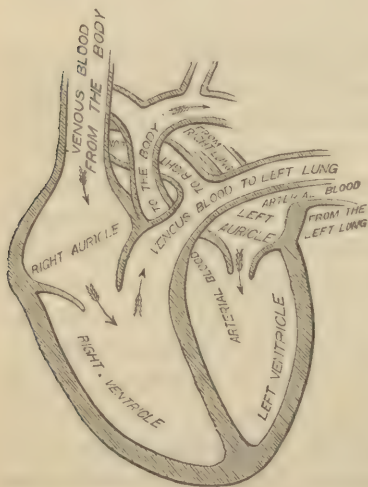 VENOUS BLOOD
FROM THE BODY
TO THE BODY
FROM
RIGHT LUNG
TO RIGHT
VENOUS BLOOD TO LEFT LUNG
BLOOD
FROM THE
LEFT LUNG
LEFT
AURICLE
RIGHT AURICLE
ARTERIAL BLOOD
RIGHT • VENTRICLE
LEFT VENTRICLE